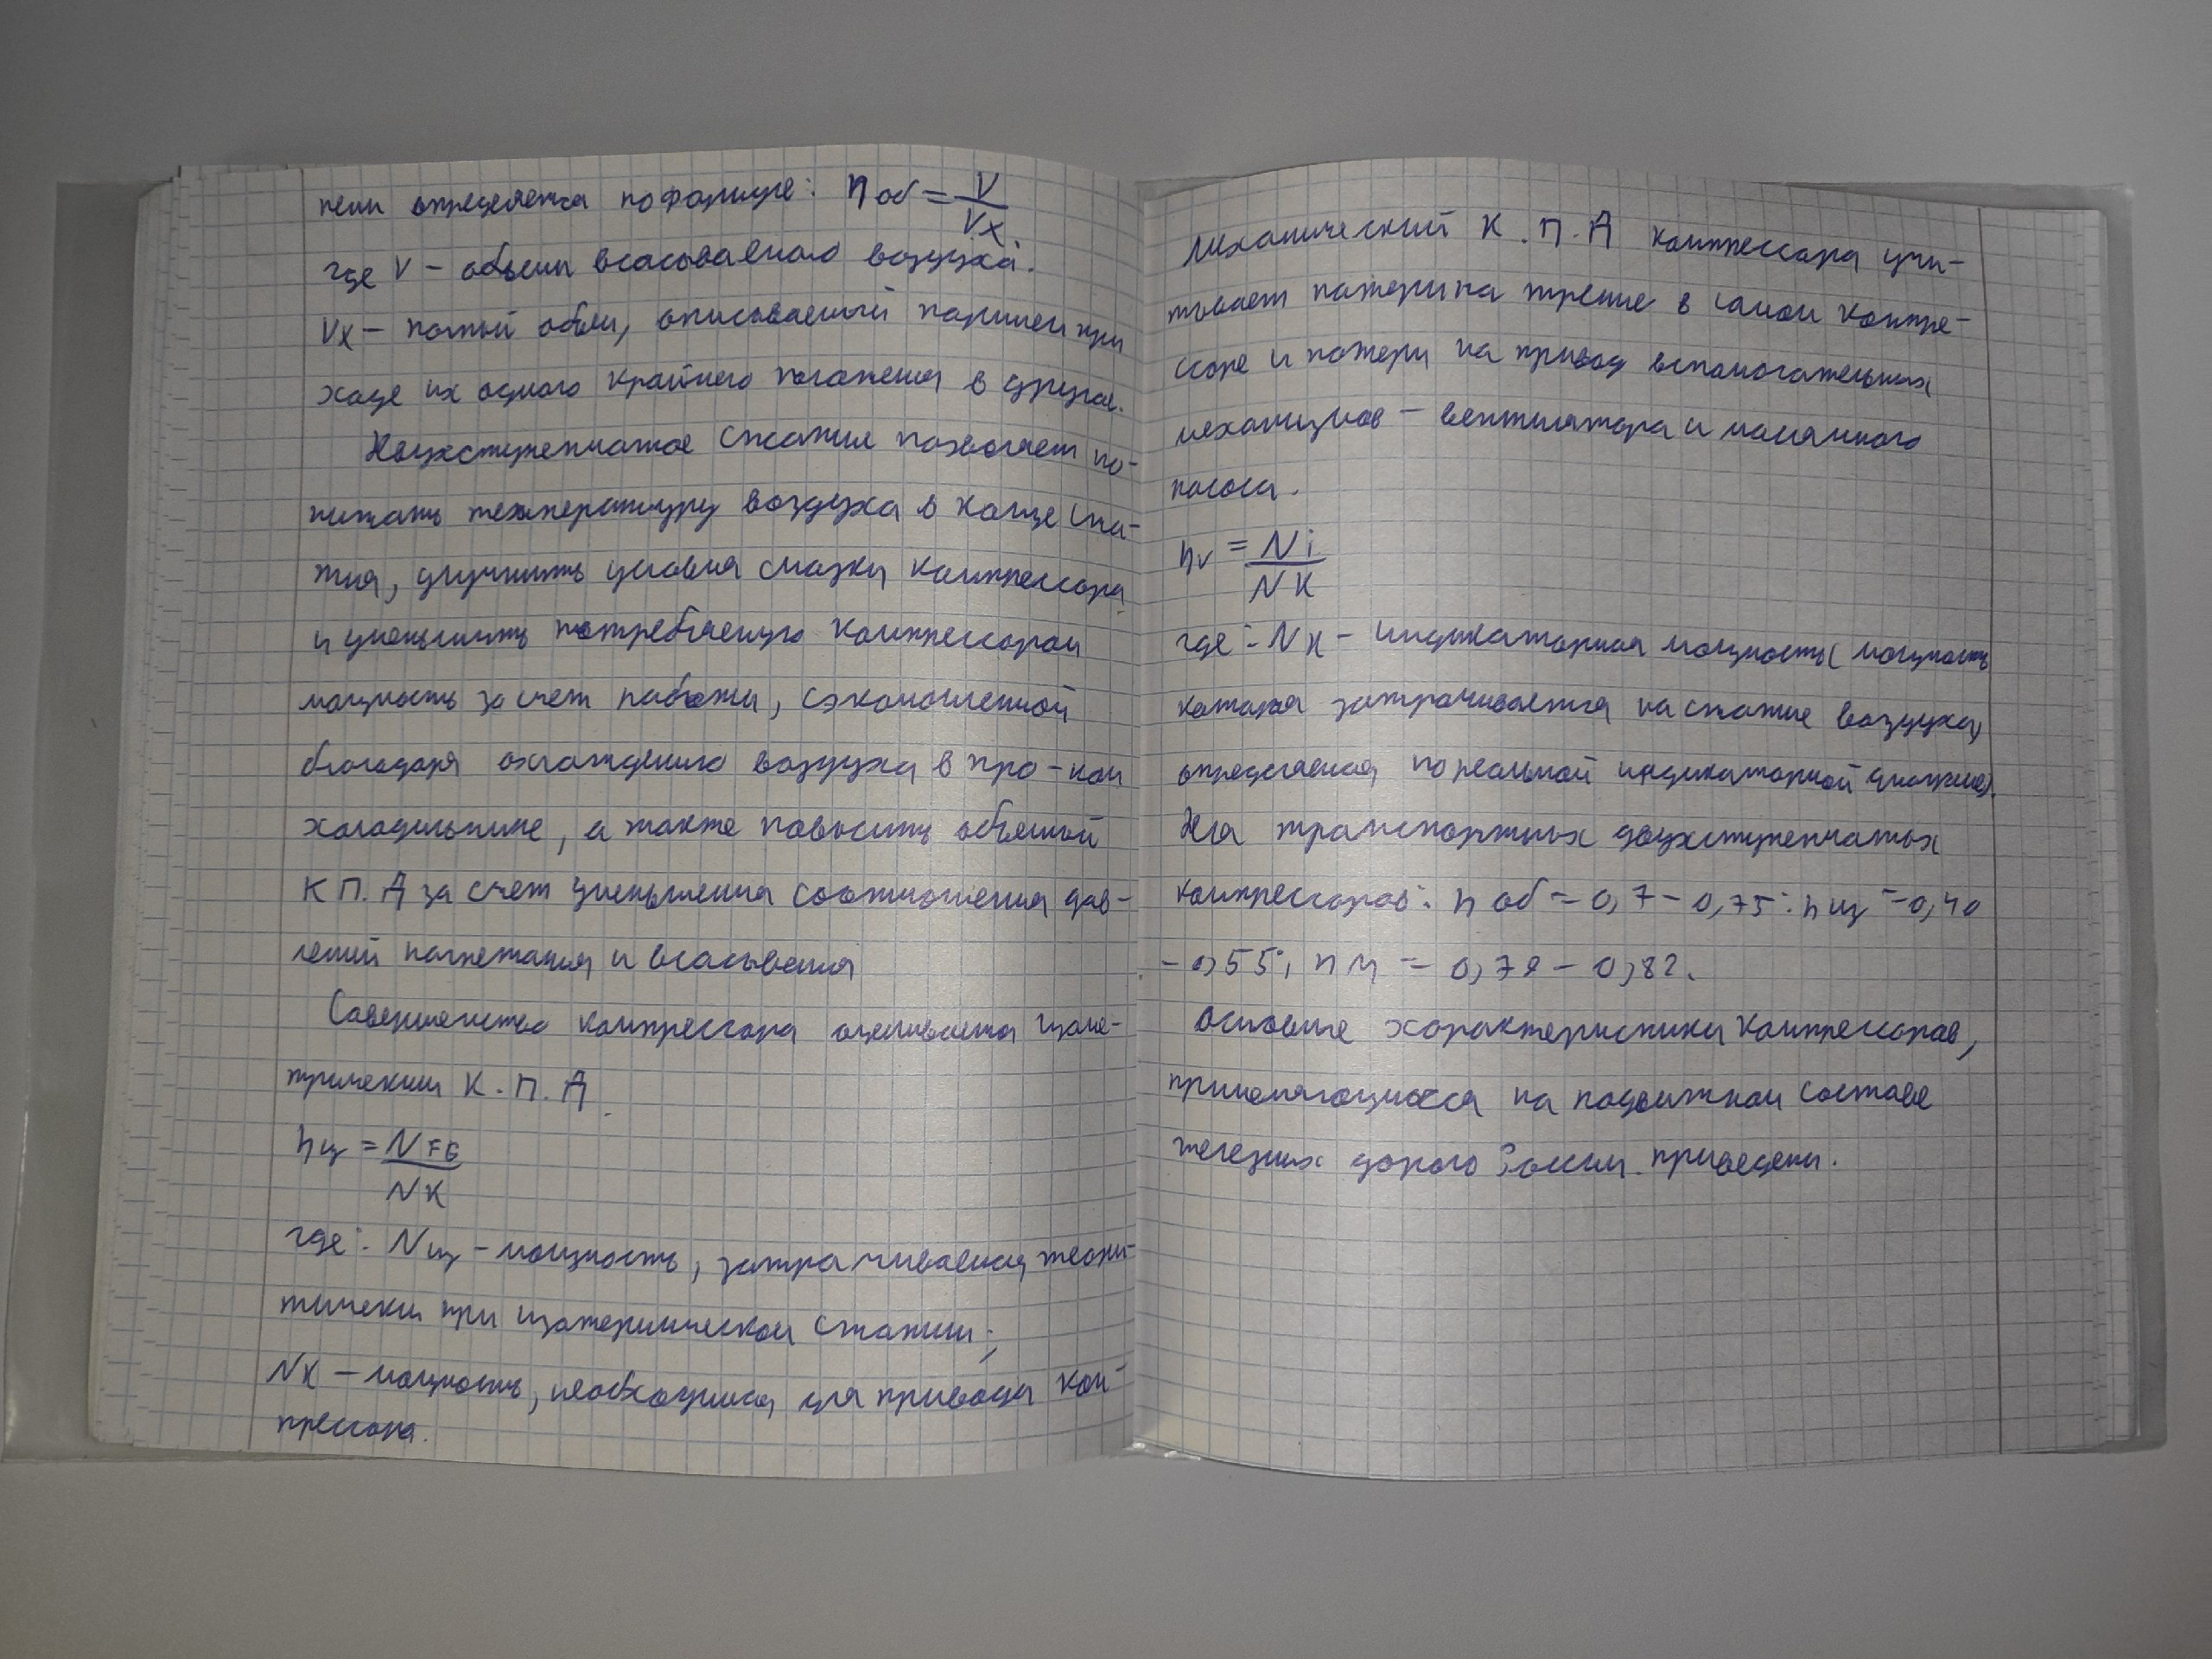 пени определяется по формуле: η об = V / Vх
где V – объем всасываемого воздуха.
Vх – полный объем, описываемый поршнем при
ходе их одного крайнего положения в другое.
Двухступенчатое сжатие позволяет по-
нижать температуру воздуха в конце сжа-
тия, улучшить условия смазки компрессора
и уменьшить потребляемую компрессором
мощность за счет работы, сэкономленной
благодаря охлаждению воздуха в про-ном
холодильнике, а также повысить объемный
К П. Д за счет уменьшения соотношения дав-
лений нагнетания и всасывания
Совершенство компрессора оценивается изоте-
К. П. Д.
hиз = N / NК
где: Nиз – мощность, затрачиваемая теори-
тически при изотермическом сжатии;
NК – мощность, необходимая для привода ком-
прессора.
Механический К. П. Д компрессора учи-
тывает потери на трение в самом компре-
ссоре и потери на привод вспомогательных
механизмов – вентилятора и масляного
насоса.
hv = Ni / NК
где: NК – индикаторная мощность( мощность
которая затрачивается на сжатие воздуха,
определяемая по реальной индикаторной
Для транспортных двухступенчатых
компрессоров: h об = 0,7 – 0,75: h из = 0,40
– 0,55; h м = 0,79 – 0,82.
Основные характеристики компрессоров,
применяющихся на подвижном составе
железных дорого России. приведены.